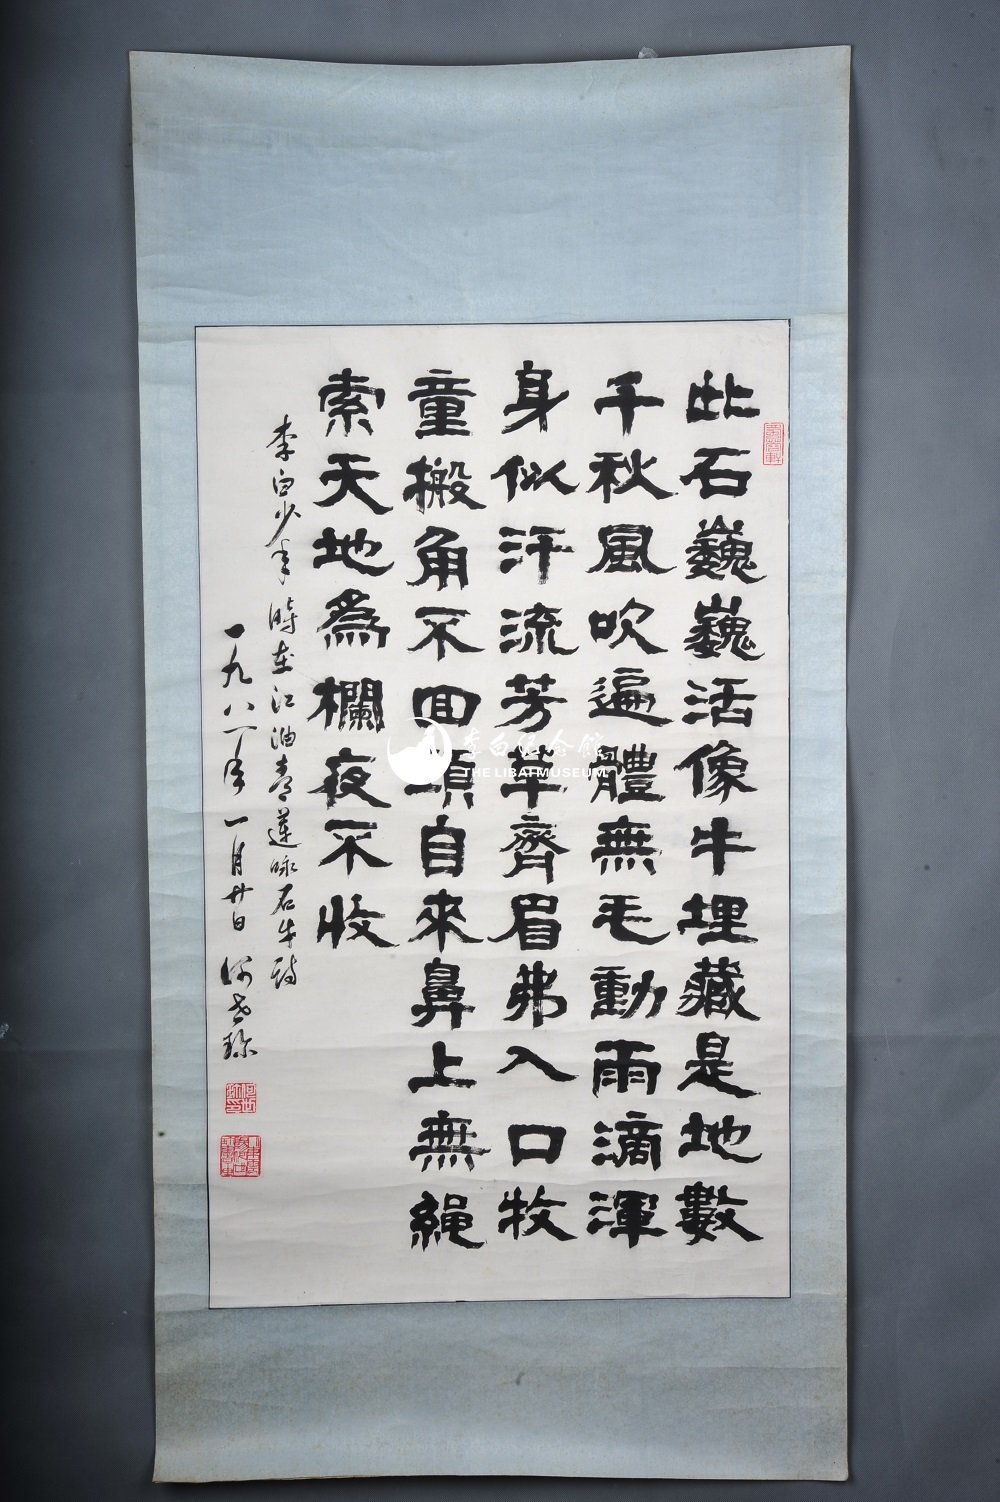 此石巍巍活像牛埋藏是地數
千秋風吹遍體無毛動雨滴渾
身似汗流芳草齊眉弗入口牧
童搬角不回頭自來鼻上無繩
索天地為欄夜不收
李白少年時在江油青蓮咏石牛詩
一九八一年一月廿日
李白紀念館
THE LIBAI MUSEUM